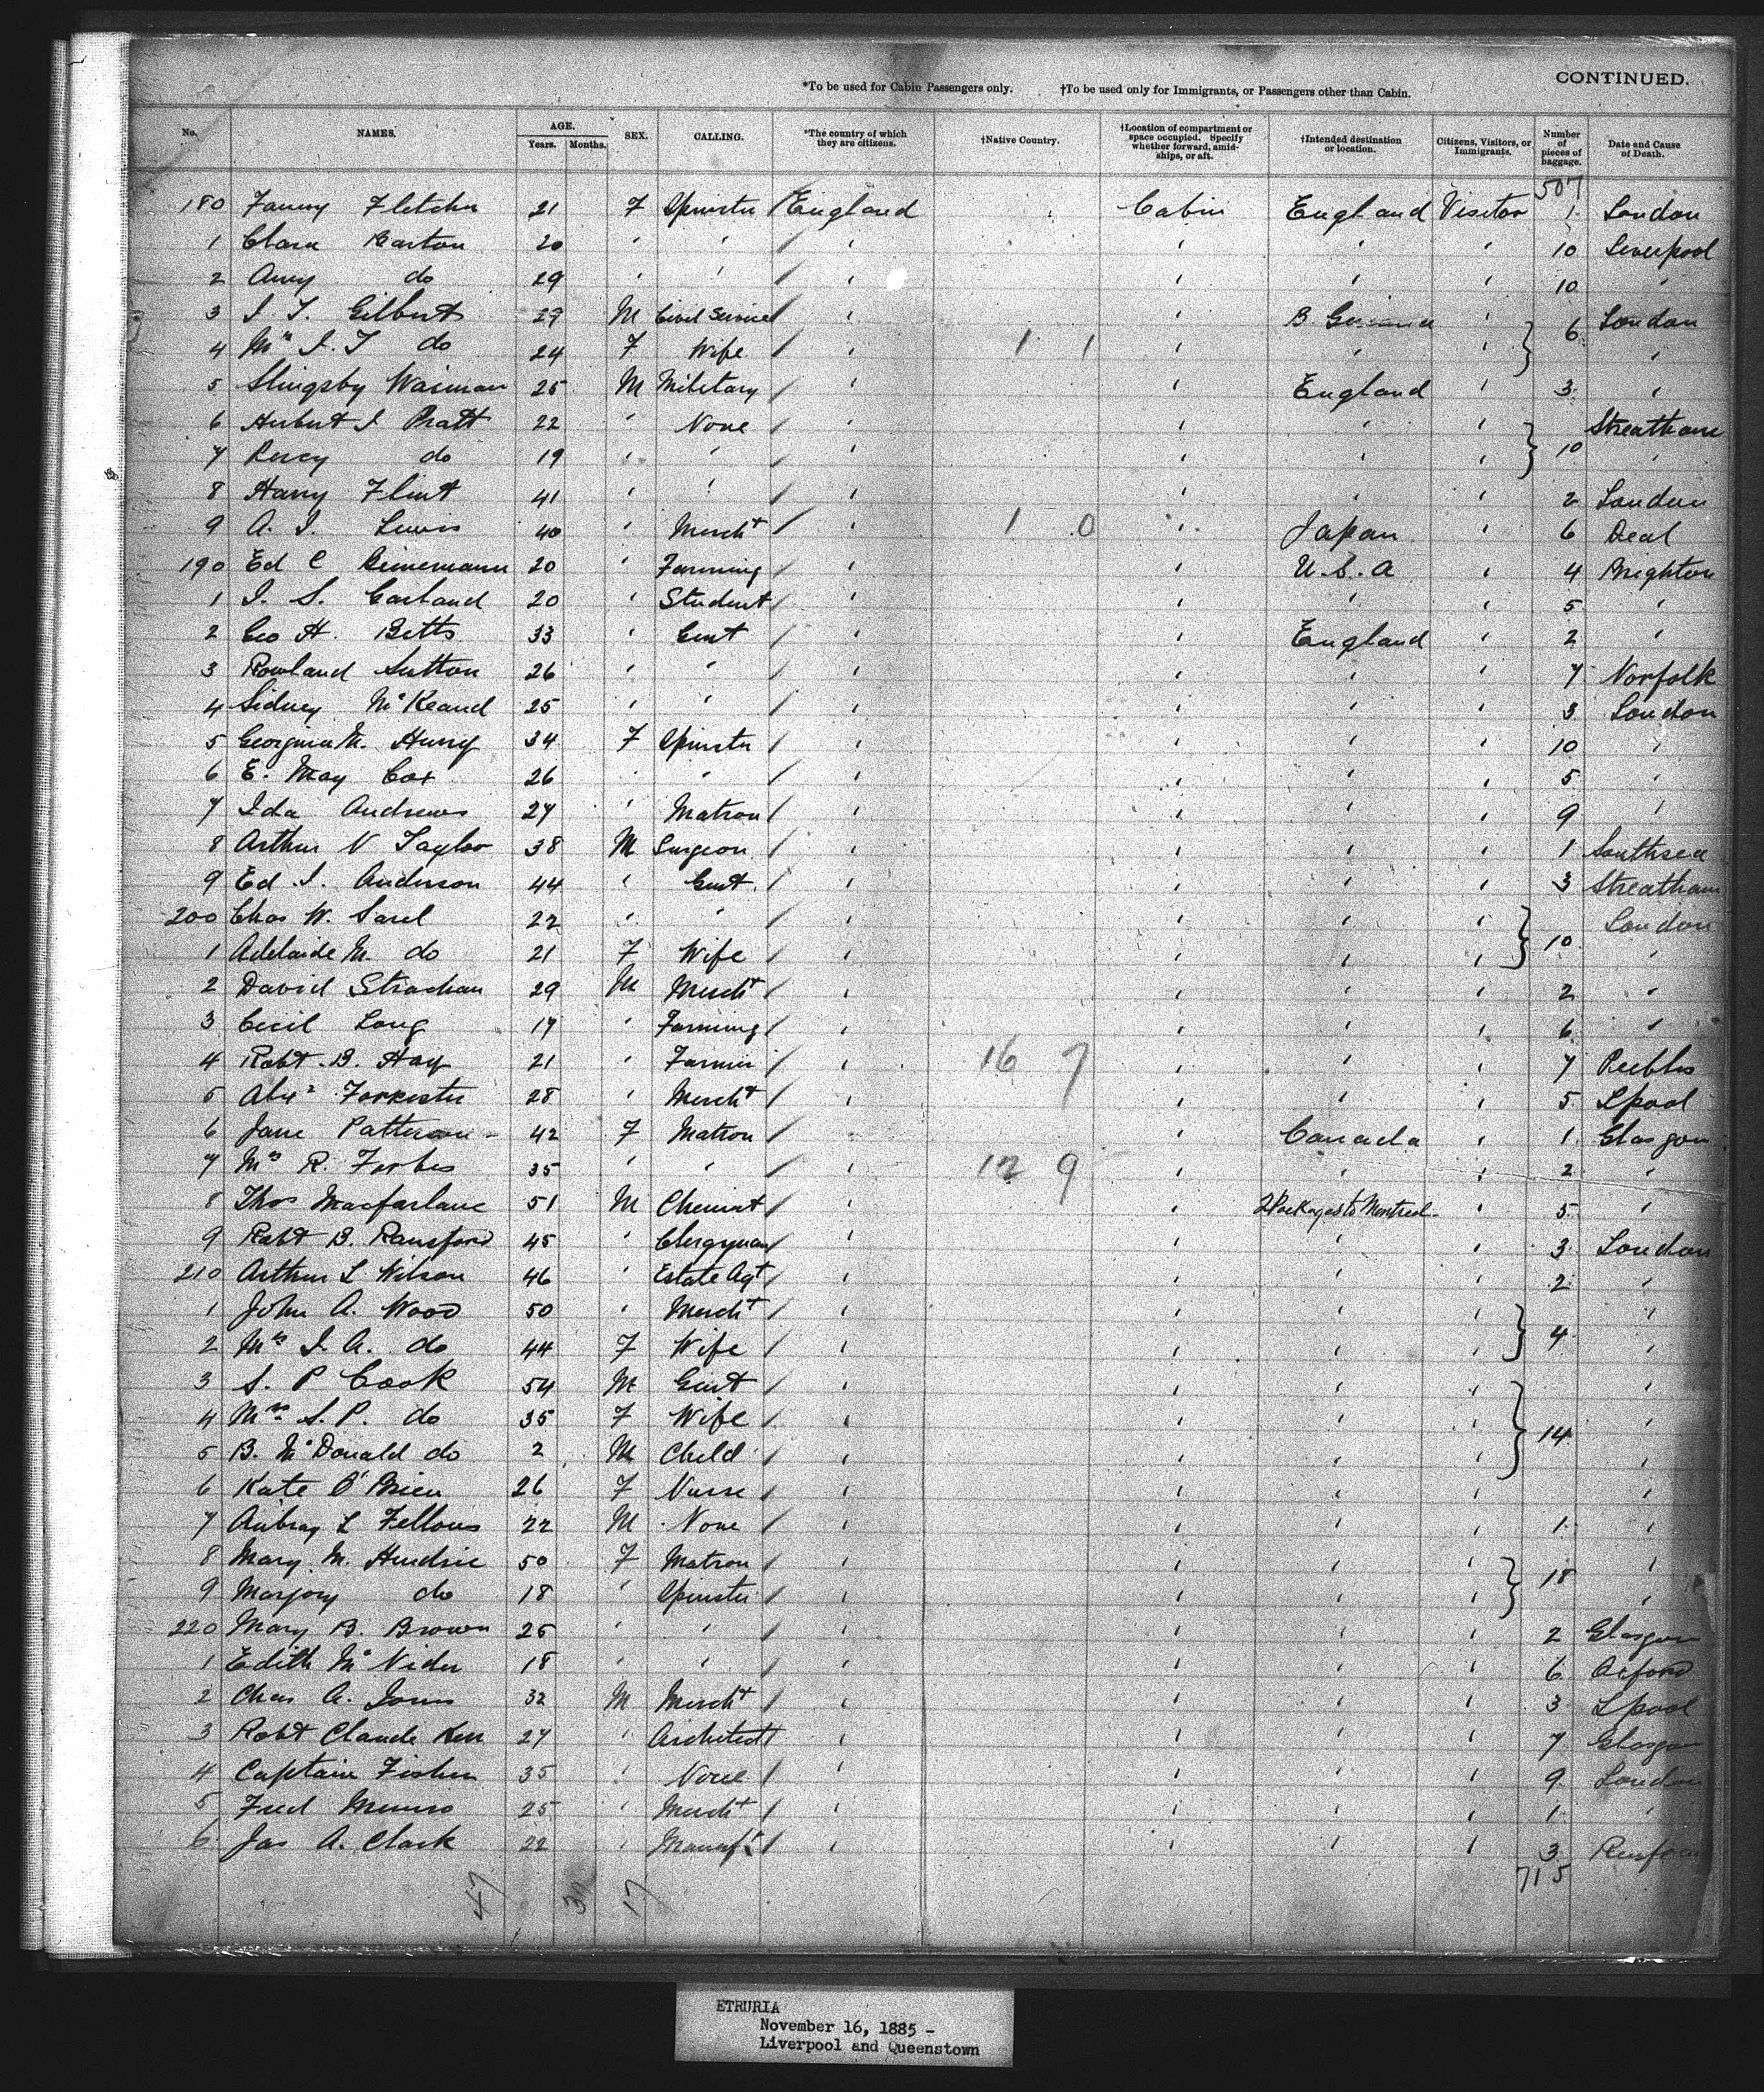 CONTINUED.
*To be used for Cabin Passengers only. †To be used only for Immigrants, or Passengers other than Cabin.
No. NAMES. AGE. Years. Months. SEX. CALLING. *The country of which they are citizens. †Native Country. †Location of compartment or space occupied. Specify whether forward, amidships, or aft. †Intended destination or location. Citizens, Visitors, or Immigrants. Number of pieces of baggage. Date and Cause of Death.
507
180 Fanny Fletcher 21 F Spinster / England Cabin England Visitor 1 London
1 Clara Barton 20 " " / " " " " 10 Liverpool
2 Amy do 29 " " / " " " " 10 "
3 I. T. Gilbert 27 M Civil Service / " " B. Guiana " 6 London
4 Mrs I. T do 24 F Wife / " 1 1 " " " "
5 Slingsby Waiman 25 M Military / " " England " 3 "
6 Herbert I Pratt 22 " None / " " " " 10 Streatham
7 Percy do 19 " " / " " " " "
8 Harry Flint 41 " " / " " " " 2 London
9 A. I. Lewis 40 " Mercht / " 1 0 " Japan " 6 Deal
190 Ed C 20 " Farming / " " U.S.A " 4 Brighton
1 I. S. Garland 20 " Student / " " " " 5 "
2 Geo H. Betts 33 " Gent / " " England " 2 "
3 Rowland Sutton 26 " " / " " " " 7 Norfolk
4 Sidney McKeand 25 " " / " " " " 3 London
5 Georgina M. Hurry 34 F Spinster / " " " " 10 "
6 E. May Cox 26 " " / " " " " 5 "
7 Ida Andrews 27 " Matron / " " " " 9 "
8 Arthur V Taylor 38 M Surgeon / " " " " 1 Southsea
9 Ed I. Anderson 44 " Gent / " " " " 3 Streatham
200 Chas W. Sarel 22 " " / " " " " 10 London
1 Adelaide M. do 21 F Wife / " " " " "
2 David Strachan 29 M Mercht / " " " " 2 "
3 Cecil Long 19 " Farming / " " " " 6 "
4 Robt. B. Hay 21 " Farmer / " 16 7 " " " 7 Peebles
5 Alexr Forrester 28 " Mercht / " " " " 5 Lpool
6 Jane Patterson 42 F Matron / " " Canada " 1 Glasgow
7 Mrs R. Forbes 35 " " / " 12 9 " " " 2 "
8 Thos Macfarlane 51 M Chemist / " " 2 Packages to Montreal " 5 "
9 Robt B. Ransford 45 " Clergyman / " " " " 3 London
210 Arthur L Wilson 46 " Estate Agt / " " " " 2 "
1 John A. Wood 50 " Mercht / " " " " 4 "
2 Mrs I. A. do 44 F Wife / " " " " "
3 S. P Cook 54 M Gent / " " " " 14 "
4 Mrs S. P. do 35 F Wife / " " " " "
5 B. McDonald do 2 M Child / " " " " "
6 Kate O'Brien 26 F Nurse / " " " " "
7 Aubray L Fellows 22 M None / " " " " 1 "
8 Mary M. Hendrie 50 F Matron / " " " " 18 "
9 Marjory do 18 " Spinster / " " " " "
220 Mary B. Brown 25 " " / " " " " 2 Glasgow
1 Edith McNider 18 " " / " " " " 6 Oxford
2 Chas A. Jones 32 M Mercht / " " " " 3 Lpool
3 Robt Claude Kerr 27 " Architect / " " " " 7 Glasgow
4 Captain Fisher 35 " None / " " " " 9 London
5 Fred Munro 25 " Mercht / " " " " 1 "
6 Jas A. Clark 22 " / " " " " 3
715
47 30 17
ETRURIA
November 16, 1885 -
Liverpool and Queenstown